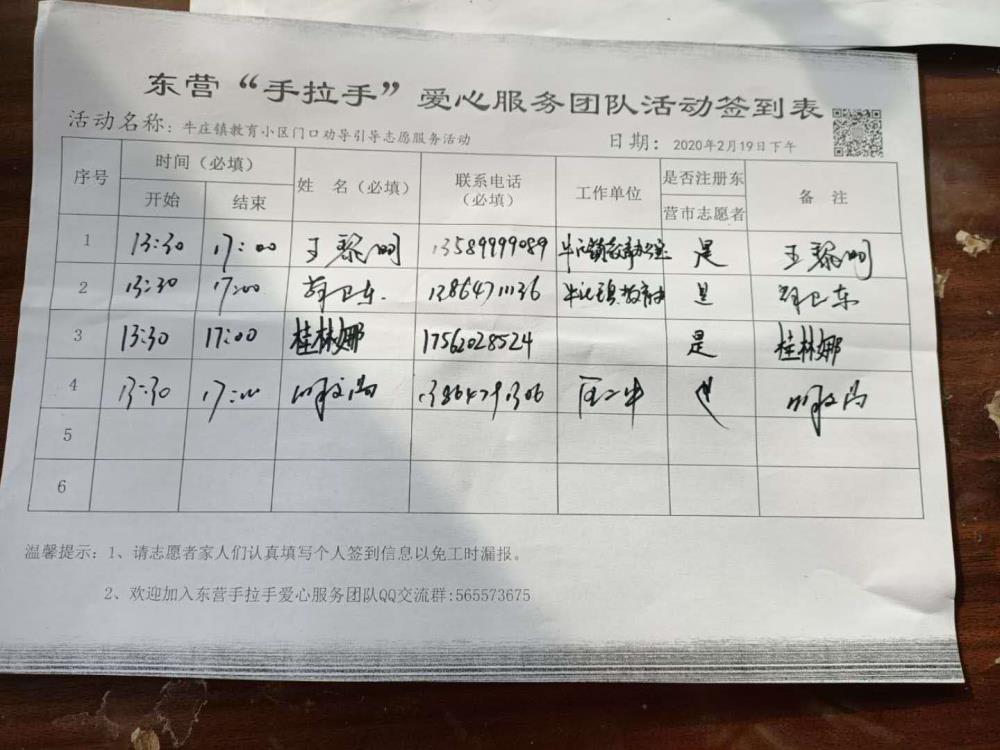 东营“手拉手”爱心服务团队活动签到表
活动名称：牛庄镇教育小区门口劝导引导志愿服务活动 日期：2020年2月19日下午
序号 时间（必填） 姓 名（必填） 联系电话（必填） 工作单位 是否注册东营市志愿者 备 注
开始 结束
1 13:30 17:00 王黎明 13589999089 是 王黎明
2 13:30 17:00 卫东 是 卫东
3 13:30 17:00 桂林娜 17562028524 是 桂林娜
4 13:30 17:00
5
6
温馨提示：1、请志愿者家人们认真填写个人签到信息以免工时漏报。
2、欢迎加入东营手拉手爱心服务团队QQ交流群:565573675